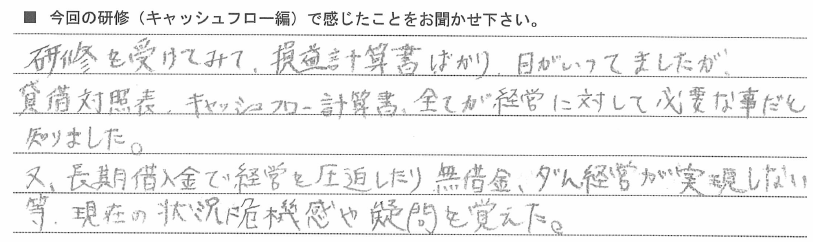 ■ 今回の研修（キャッシュフロー編）で感じたことをお聞かせ下さい。
研修を受けてみて、損益計算書ばかり、目がいってましたが、
貸借対照表、キャッシュフロー計算書、全てが経営に対して必要な事だと
知りました。
又、長期借入金で経営を圧迫したり無借金、ダム経営が実現しない
等、現在の状況に危機感や疑問を覚えた。